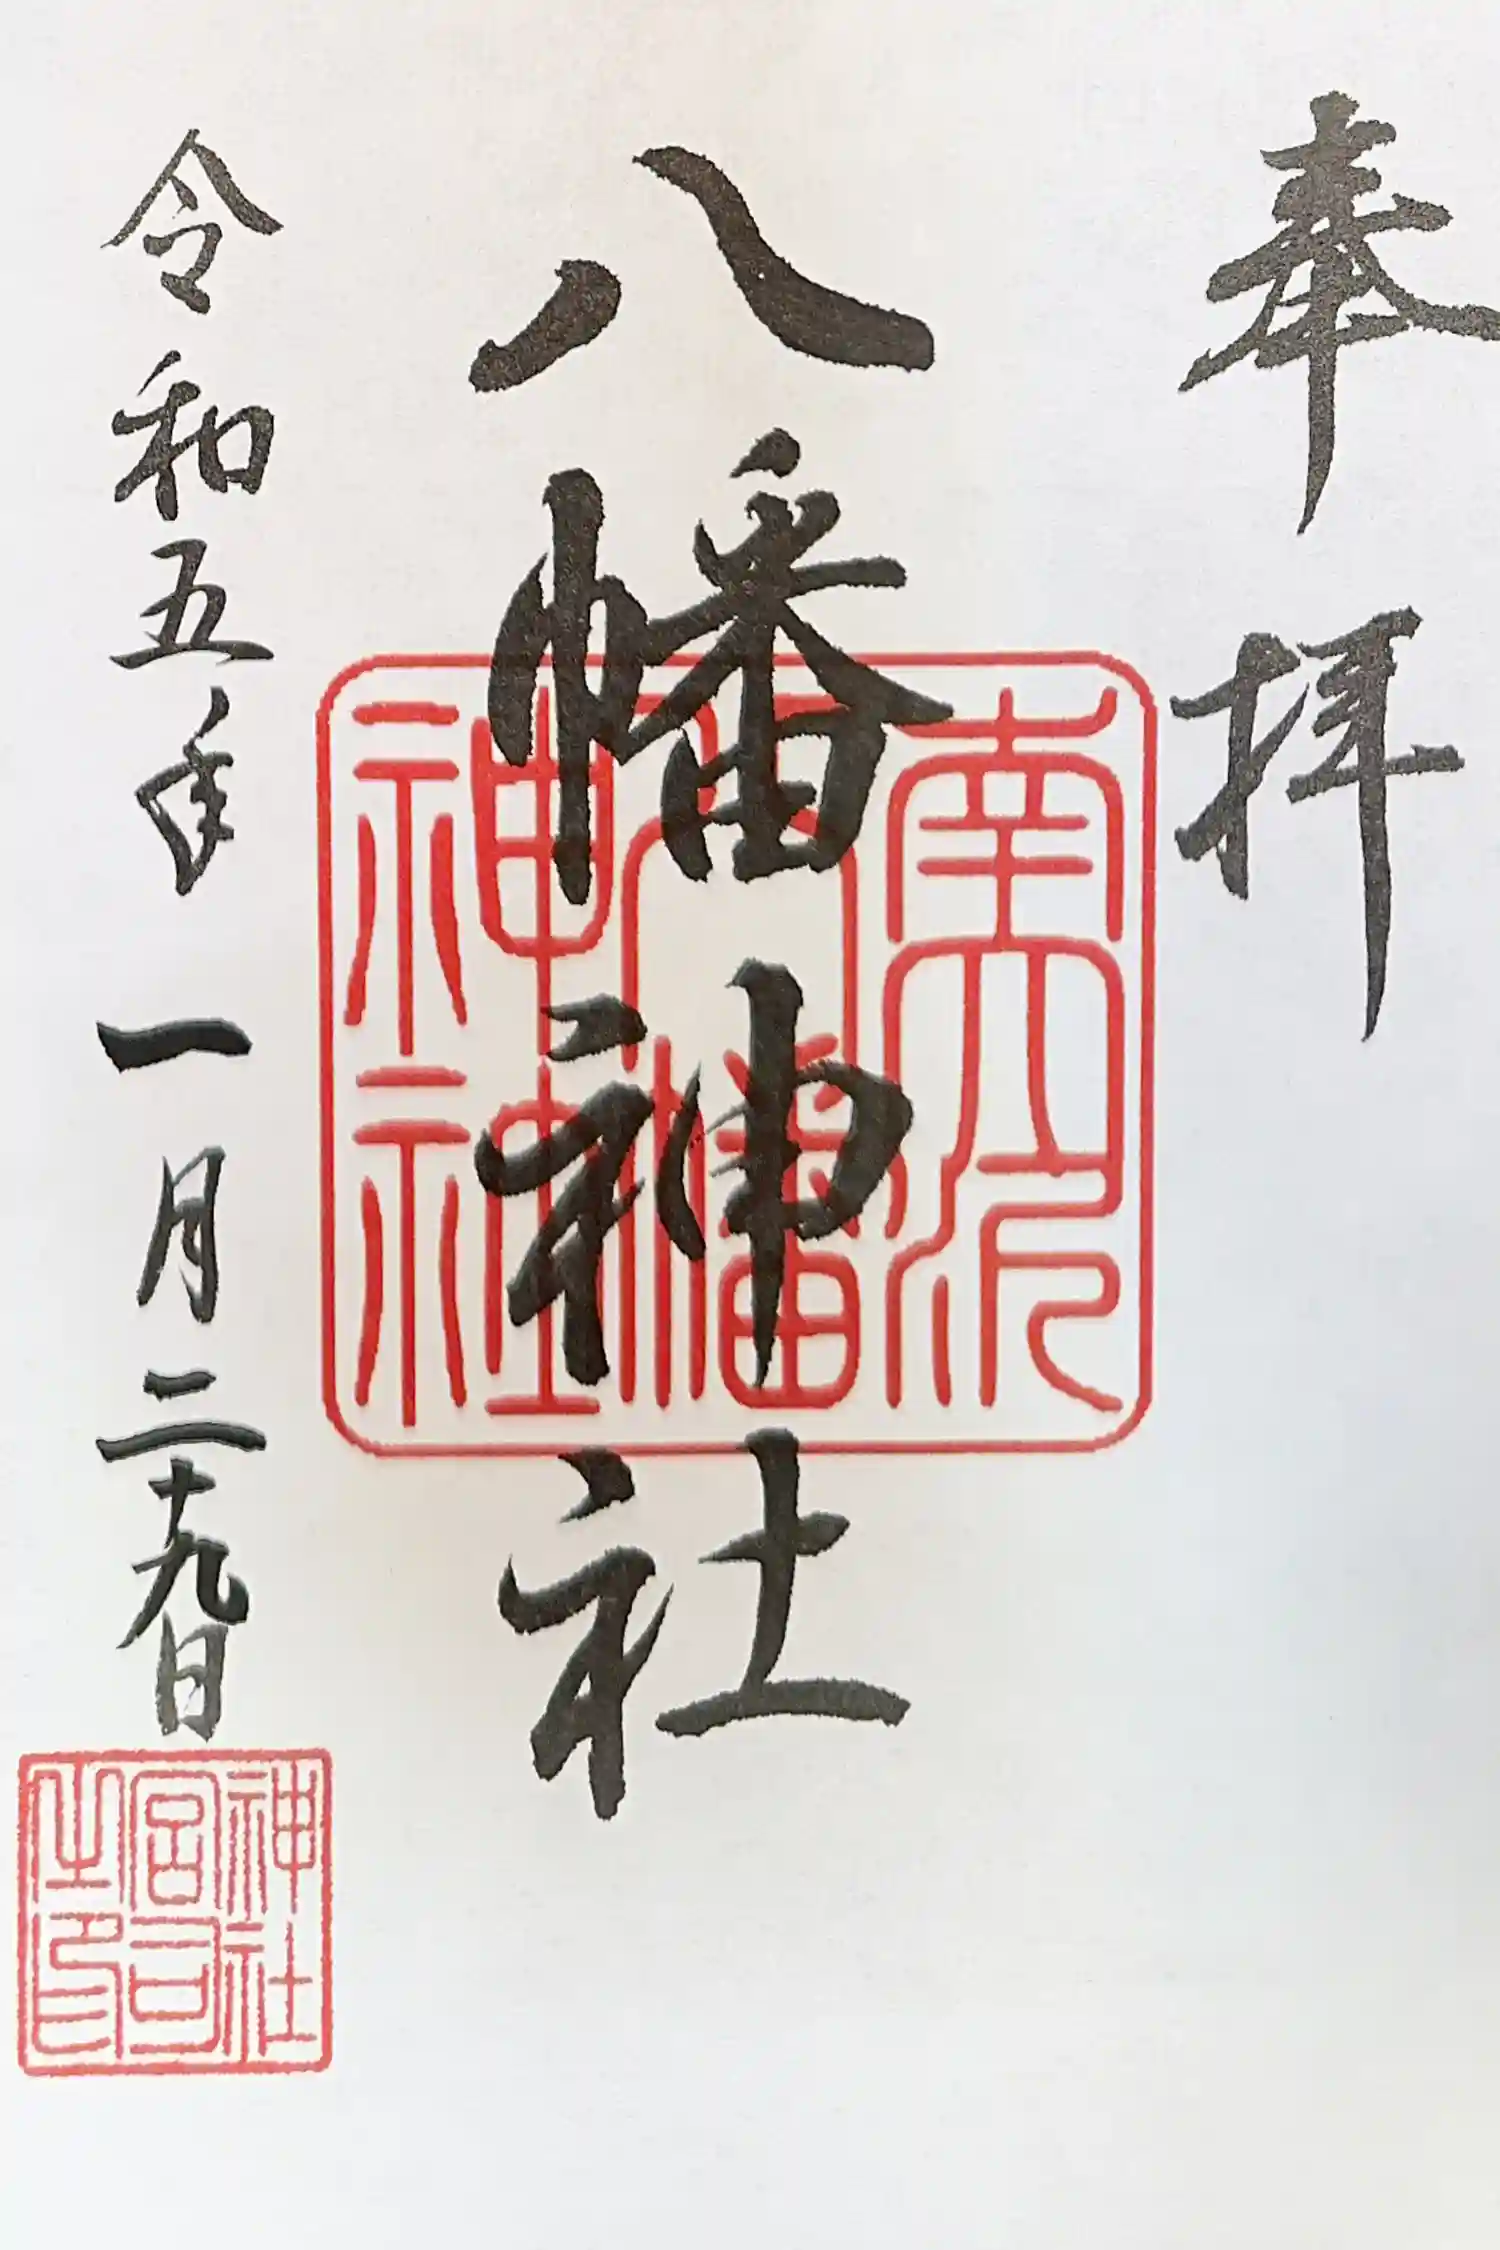 奉拝
八幡神社
南大沢
八幡
神社
令和五年一月二十九日
神社
宮司
之印